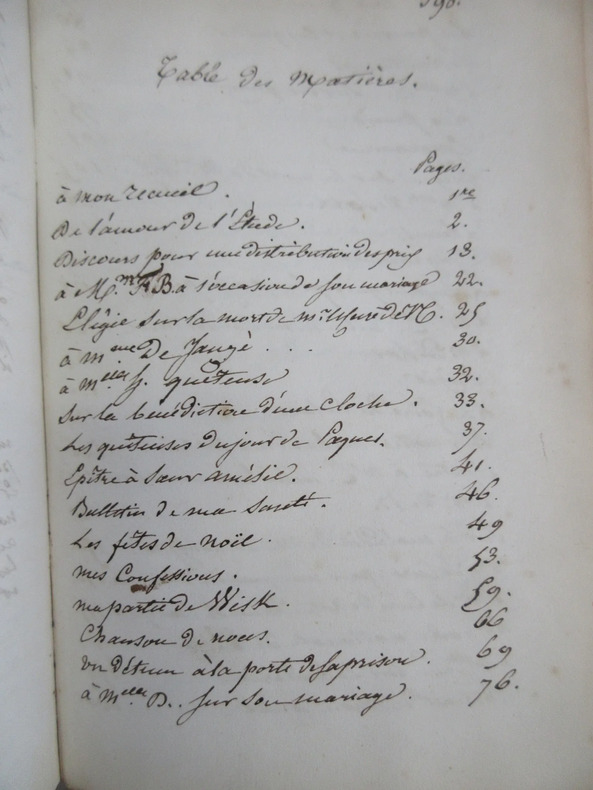 190.
Table des Matières.
Pages.
à mon recueil. 1re
De l'amour de l'Etude. 2.
Discours pour une distribution des prix 13.
à Mme F. B. à l'occasion de son mariage 22.
Elégie sur la mort de mr le Curé de N. 25
à mme De Jaugé . . . 30.
à melle h. quêteuse 32.
sur la bénédiction d'une cloche. 33.
Les quêteuses du jour de Paques. 37.
Epître à Sœur amésie. 41.
Bulletin de ma Santé. 46.
Les fêtes de noël. 49
mes Confessions. 53.
ma partie de Wisk. 59.
Chanson de noces. 66
un détenu à la porte de sa prison. 69
à melle D.. sur son mariage. 76.